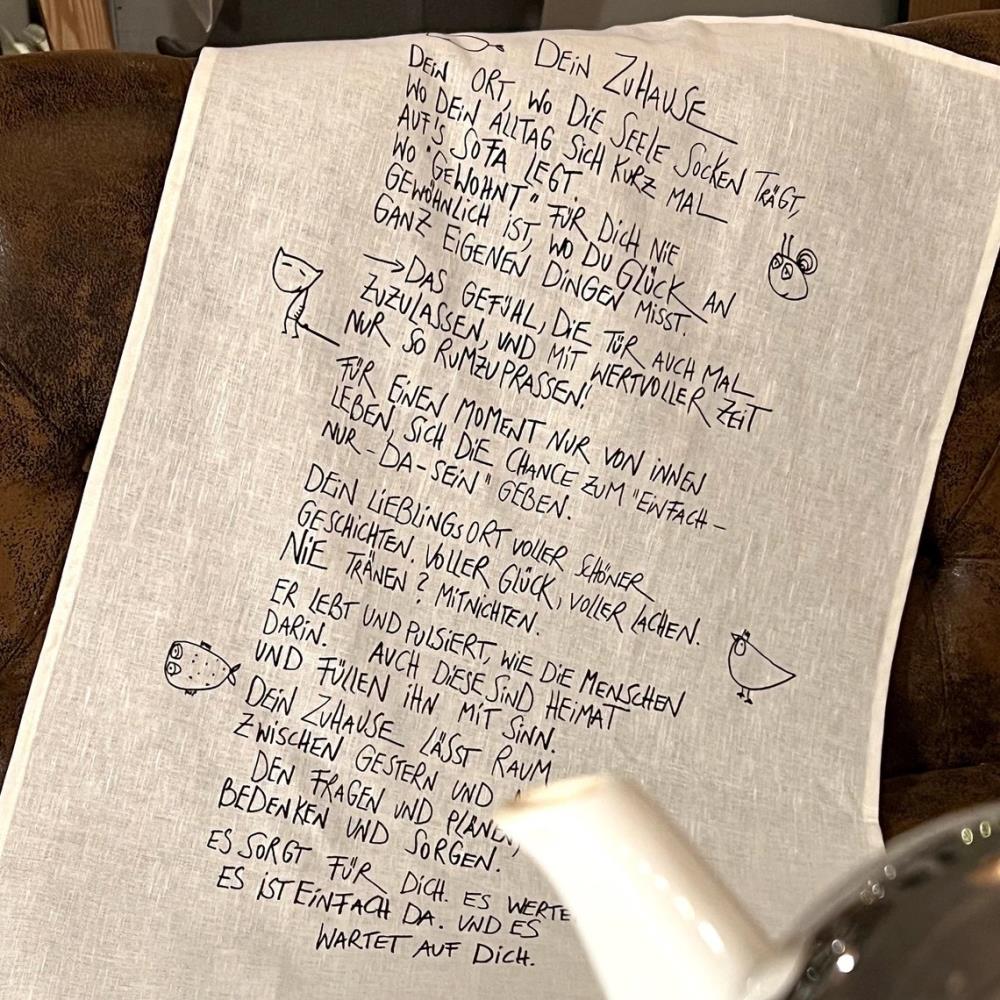 DEIN ZUHAUSE
DEIN ORT, WO DIE SEELE SOCKEN TRÄGT,
WO DEIN ALLTAG SICH KURZ MAL
AUF'S SOFA LEGT.
WO "GEWOHNT" FÜR DICH NIE
GEWÖHNLICH IST, WO DU GLÜCK AN
GANZ EIGENEN DINGEN MISST.
→ DAS GEFÜHL, DIE TÜR AUCH MAL
ZUZULASSEN, UND MIT WERTVOLLER ZEIT
NUR SO RUMZUPRASSEN!
FÜR EINEN MOMENT NUR VON INNEN
LEBEN, SICH DIE CHANCE ZUM "EINFACH-
NUR-DA-SEIN" GEBEN.
DEIN LIEBLINGSORT VOLLER SCHÖNER
GESCHICHTEN. VOLLER GLÜCK, VOLLER LACHEN.
NIE TRÄNEN? MITNICHTEN.
ER LEBT UND PULSIERT, WIE DIE MENSCHEN
DARIN. AUCH DIESE SIND HEIMAT
UND FÜLLEN IHN MIT SINN.
DEIN ZUHAUSE LÄSST RAUM
ZWISCHEN GESTERN UND
DEN FRAGEN UND PLÄNEN,
BEDENKEN UND SORGEN.
ES SORGT FÜR DICH. ES WERTE
ES IST EINFACH DA. UND ES
WARTET AUF DICH.